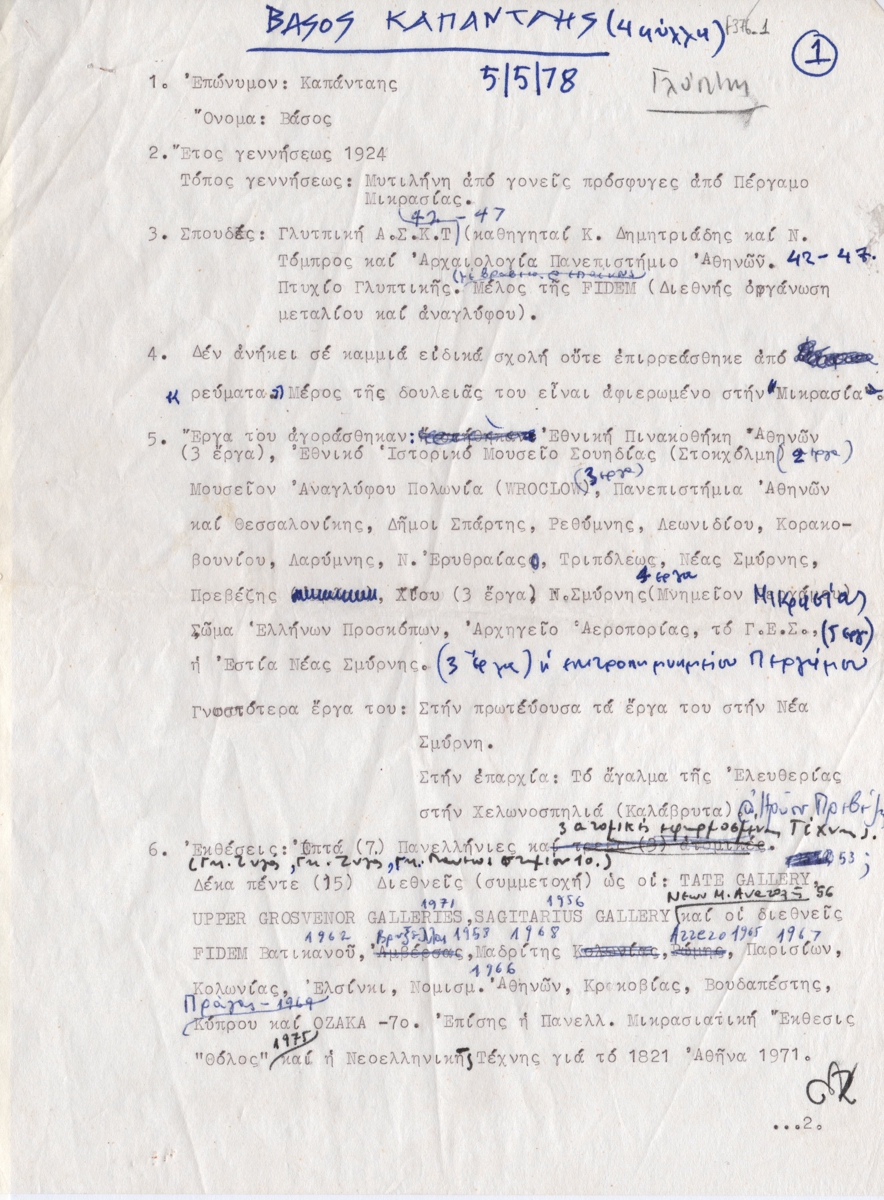 ΒΑΣΟΣ ΚΑΠΑΝΤΑΗΣ (4 φύλλα)
1
5/5/78
Γλύπτης
1. Ἐπώνυμον: Καπάνταης
Ὄνομα: Βάσος
2. Ἔτος γεννήσεως 1924
Τόπος γεννήσεως: Μυτιλήνη ἀπό γονεῖς πρόσφυγες ἀπό Πέργαμο
Μικρασίας.
42-47
3. Σπουδές: Γλυτπική Α.Σ.Κ.Τ (καθηγηταί Κ. Δημητριάδης καί Ν.
Τόμπρος καί Ἀρχαιολογία Πανεπιστήμιο Ἀθηνῶν. 42-47.
Πτυχίο Γλυπτικῆς. Μέλος τῆς FIDEM (Διεθνής ὀργάνωση
μεταλίου καί ἀναγλύφου).
4. Δέν ἀνήκει σέ καμμιά εἰδικά σχολή οὔτε ἐπιρρεάσθηκε ἀπό
ρεύματα. Μέρος τῆς δουλειᾶς του εἶναι ἀφιερωμένο στήν "Μικρασία".
5. Ἔργα του ἀγοράσθηκαν: Ἐθνική Πινακοθήκη Ἀθηνῶν
(3 ἔργα), Ἐθνικό Ἱστορικό Μουσεῖο Σουηδίας (Στοκχόλμη (2 ἔργα)
(3 ἔργα)
Μουσεῖον Ἀναγλύφου Πολωνία (WROCLOW), Πανεπιστήμια Ἀθηνῶν
καί Θεσσαλονίκης, Δῆμοι Σπάρτης, Ρεθύμνης, Λεωνιδίου, Κορακο-
βουνίου, Λαρύμνης, Ν. Ἐρυθραίας, Τριπόλεως, Νέας Σμύρνης,
4 ἔργα
Πρεβέζης, Χίου (3 ἔργα) Ν.Σμύρνης (Μνημεῖον Μικρασίας
Σῶμα Ἑλλήνων Προσκόπων, Ἀρχηγεῖο Ἀεροπορίας, τό Γ.Ε.Σ., (5 ἔργ)
ἡ Ἑστία Νέας Σμύρνης. (3 ἔργα) ἡ ἐπιτροπή μνημείου Περγάμου
Γνωστότερα ἔργα του: Στήν πρωτεύουσα τά ἔργα του στήν Νέα
Σμύρνη.
Στήν ἐπαρχία: Τό ἄγαλμα τῆς Ἐλευθερίας
στήν Χελωνοσπηλιά (Καλάβρυτα)
6. Ἐκθέσεις: Ἑπτά (7) Πανελλήνιες καί τρεῖς (3) ἀτομικές.
3 ἀτομικές ἐφηρμοσμένης Τέχνης.
53;
Δέκα πέντε (15) Διεθνεῖς (συμμετοχή) ὡς οἱ: TATE GALLERY,
'56
1971 1956
UPPER GROSVENOR GALLERIES, SAGITARIUS GALLERY καί οἱ διεθνεῖς
1962 Βρυξέλλαι 1958 1968 Arezzo 1965 1967
FIDEM Βατικανοῦ, Ἀμβέρσας, Μαδρίτης Κολωνίας, Ρώμης, Παρισίων,
1966
Κολωνίας, Ἐλσίνκι, Νομισμ. Ἀθηνῶν, Κρακοβίας, Βουδαπέστης,
Πράγας-1969
Κύπρου καί OZAKA -7ο. Ἐπίσης ἡ Πανελλ. Μικρασιατική Ἔκθεσις
1975
"Θόλος" καί ἡ Νεοελληνικῆς Τέχνης γιά τό 1821 Ἀθῆνα 1971.
...2.